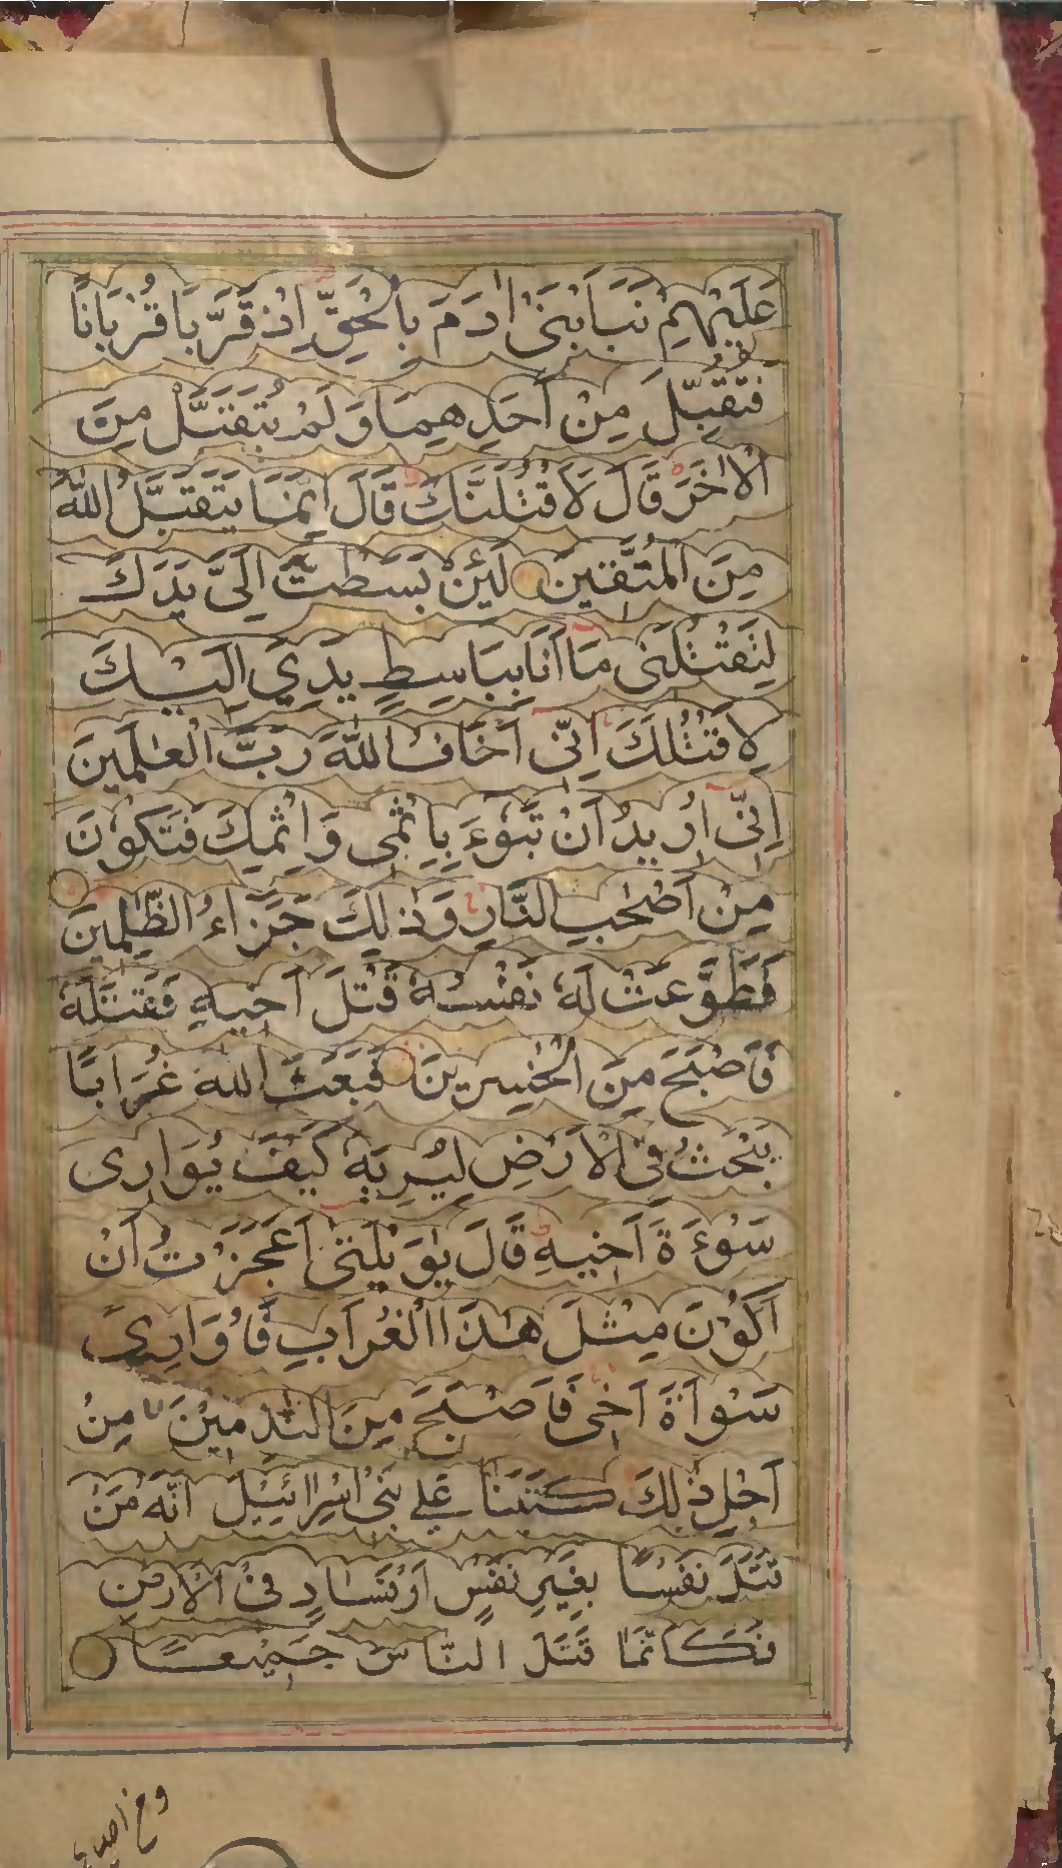 عَلَيْهِمْ نَبَاَ ابْنَىْ اٰدَمَ بِالْحَقِّ اِذْ قَرَّبَا قُرْبَانًا
فَتُقُبِّلَ مِنْ اَحَدِهِمَا وَلَمْ يُتَقَبَّلْ مِنَ
الْاٰخَرِ قَالَ لَاَقْتُلَنَّكَ قَالَ اِنَّمَا يَتَقَبَّلُ اللّٰهُ
مِنَ الْمُتَّقِيْنَ لَئِنْ بَسَطْتَّ اِلَىَّ يَدَكَ
لِتَقْتُلَنِىْ مَا اَنَا بِبَاسِطٍ يَدِيَ اِلَيْكَ
لِاَقْتُلَكَ اِنِّىْ اَخَافُ اللّٰهَ رَبَّ الْعٰلَمِيْنَ
اِنِّىْ اُرِيْدُ اَنْ تَبُوْءَ بِاِثْمِىْ وَاِثْمِكَ فَتَكُوْنَ
مِنْ اَصْحٰبِ النَّارِ وَذٰلِكَ جَزَاءُ الظّٰلِمِيْنَ
فَطَوَّعَتْ لَهٗ نَفْسُهٗ قَتْلَ اَخِيْهِ فَقَتَلَهٗ
فَاَصْبَحَ مِنَ الْخٰسِرِيْنَ فَبَعَثَ اللّٰهُ غُرَابًا
يَبْحَثُ فِى الْاَرْضِ لِيُرِيَهٗ كَيْفَ يُوَارِىْ
سَوْءَةَ اَخِيْهِ قَالَ يٰوَيْلَتٰى اَعَجَزْتُ اَنْ
اَكُوْنَ مِثْلَ هٰذَا الْغُرَابِ فَاُوَارِىَ
سَوْاَةَ اَخِىْ فَاَصْبَحَ مِنَ النّٰدِمِيْنَ مِنْ
اَجْلِ ذٰلِكَ كَتَبْنَا عَلٰى بَنِىْ اِسْرَائِيْلَ اَنَّهٗ مَنْ
قَتَلَ نَفْسًا بِغَيْرِ نَفْسٍ اَوْ فَسَادٍ فِى الْاَرْضِ
فَكَاَنَّمَا قَتَلَ النَّاسَ جَمِيْعًا